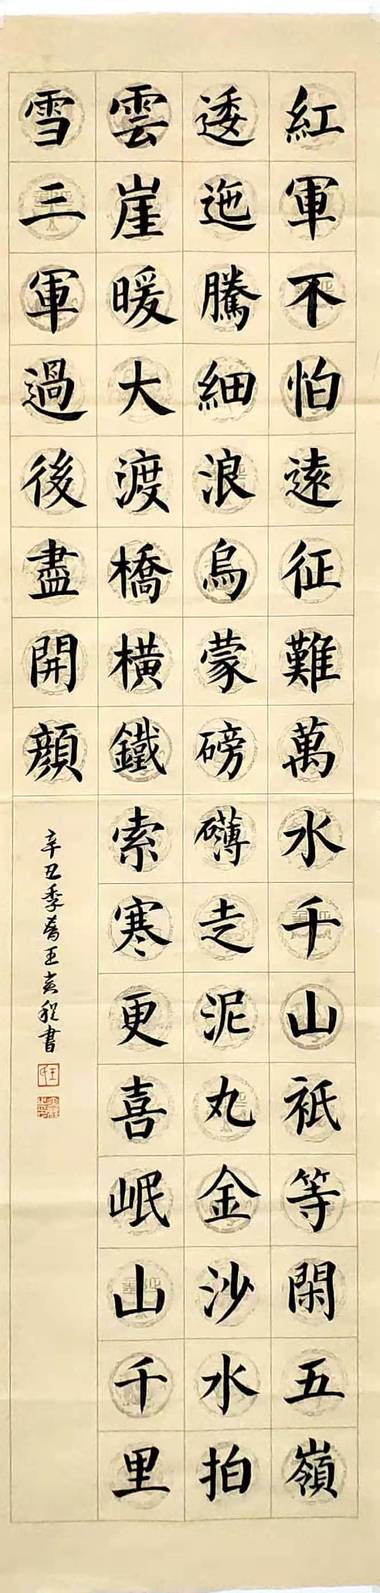 紅軍不怕遠征難萬水千山衹等閑五嶺
逶迤騰細浪烏蒙磅礴走泥丸金沙水拍
雲崖暖大渡橋橫鐵索寒更喜岷山千里
雪三軍過後盡開顔
辛丑季春王亥程書